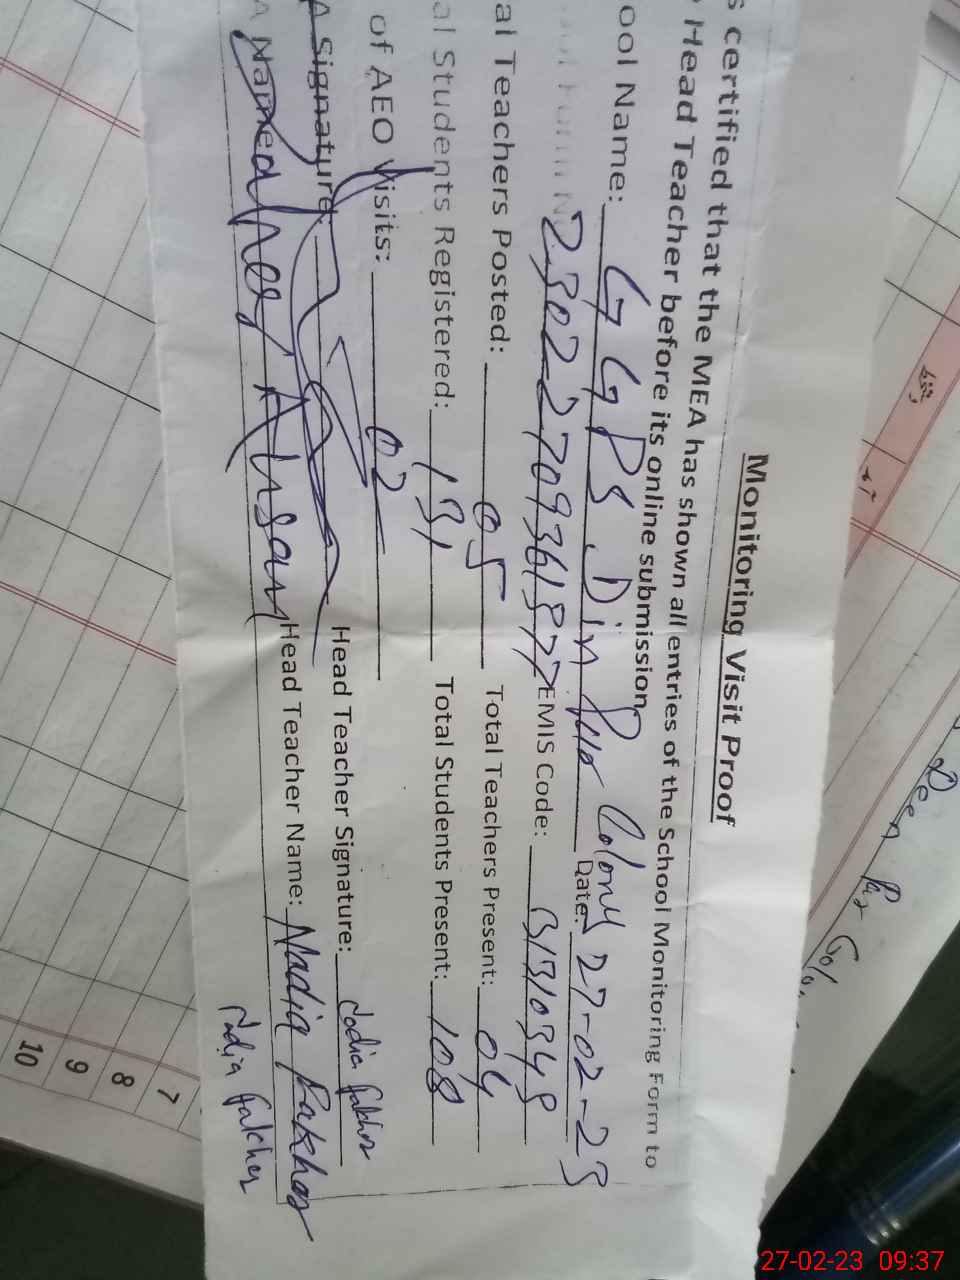 Monitoring Visit Proof
s certified that the MEA has shown all entries of the School Monitoring Form to
Head Teacher before its online submission
ool Name: GGPS Din Pur Colony Date: 27-02-23
EMIS Code: 31310348
al Teachers Posted: 05 Total Teachers Present: 04
al Students Registered: 131 Total Students Present: 108
of AEO Visits: 02
A Signature: Head Teacher Signature: Nadia Fakhar
A Name: Ahsan Head Teacher Name: Nadia Fakhar
Nadia Fakhar
7
8
9
10
27-02-23 09:37